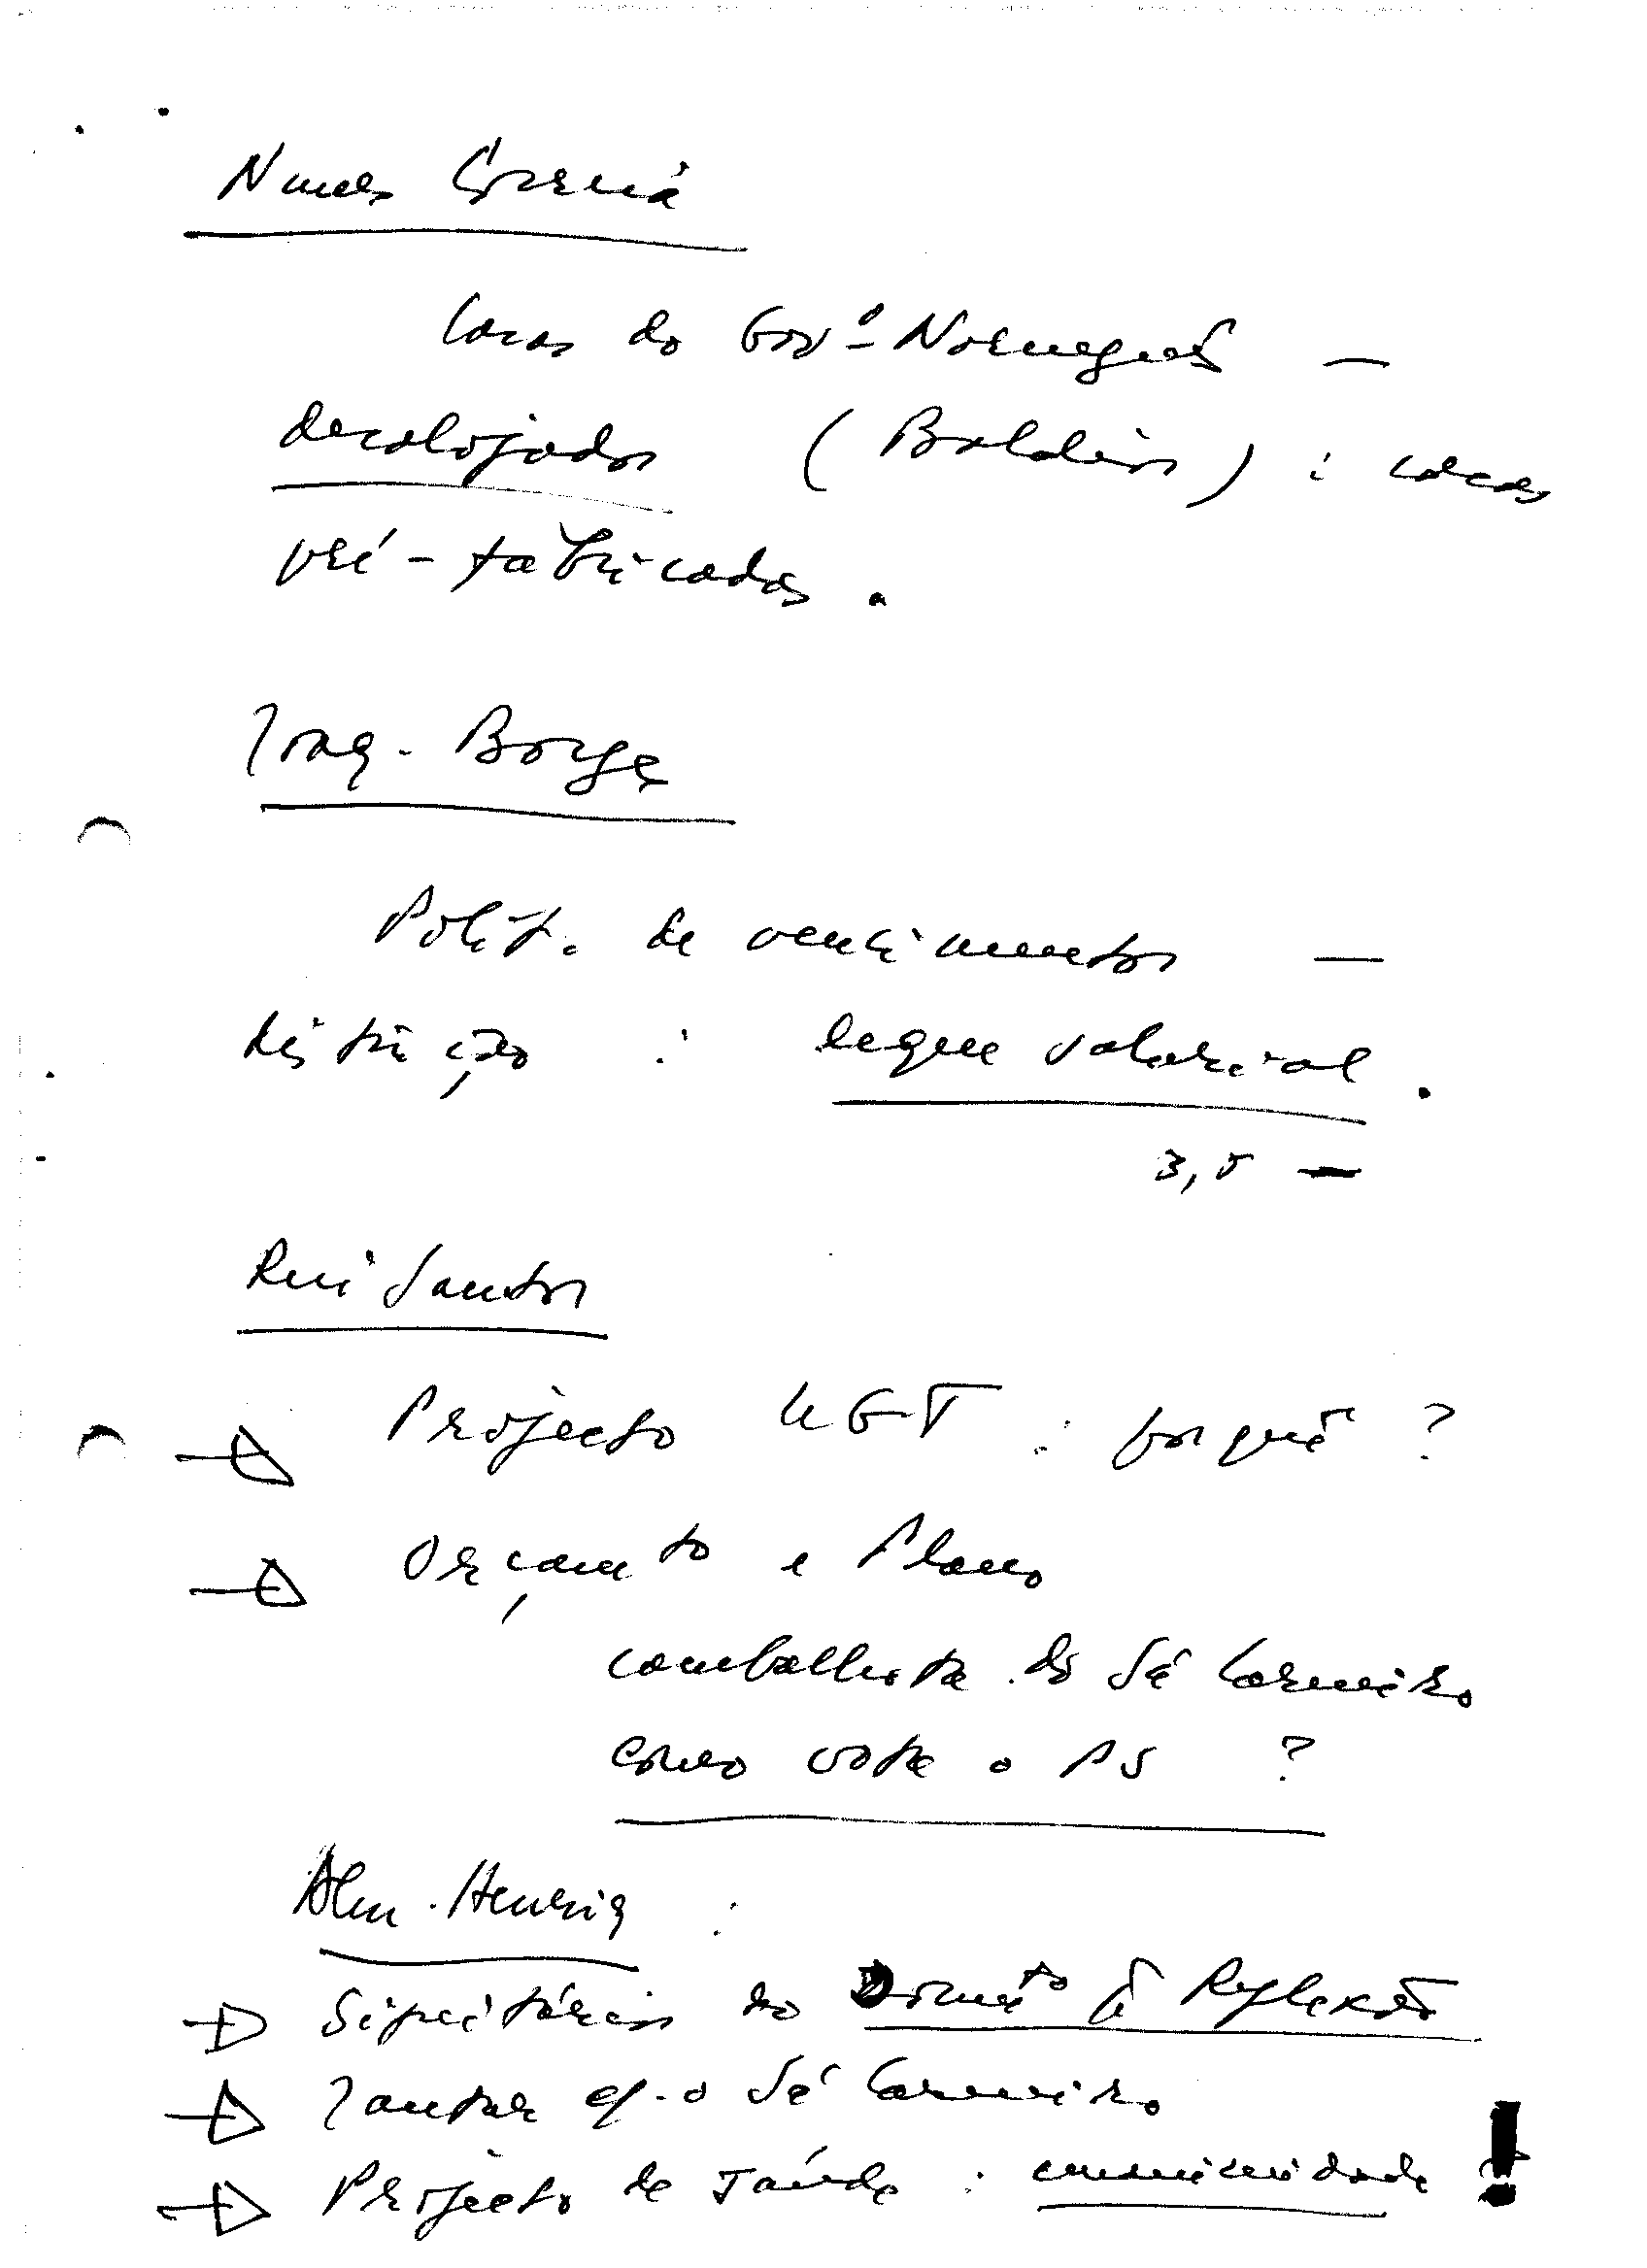 Nunes Correia
Casas do Govº Norueguês —
desalojados (Baldios) : casas
pré-fabricadas.
Joaq. Borges
Polít. de vencimentos —
distinção : leque salarial.
3,5 —
Rui Santos
Projecto UGT : porquê ?
Orçamto e Plano
cambalhota do Sá Carneiro
como vota o PS ?
Alm. Henriq :
Signitários do Docum.to p.ª Reflexão
Jantar c/. o Sá Carneiro
Projecto de Saúde :